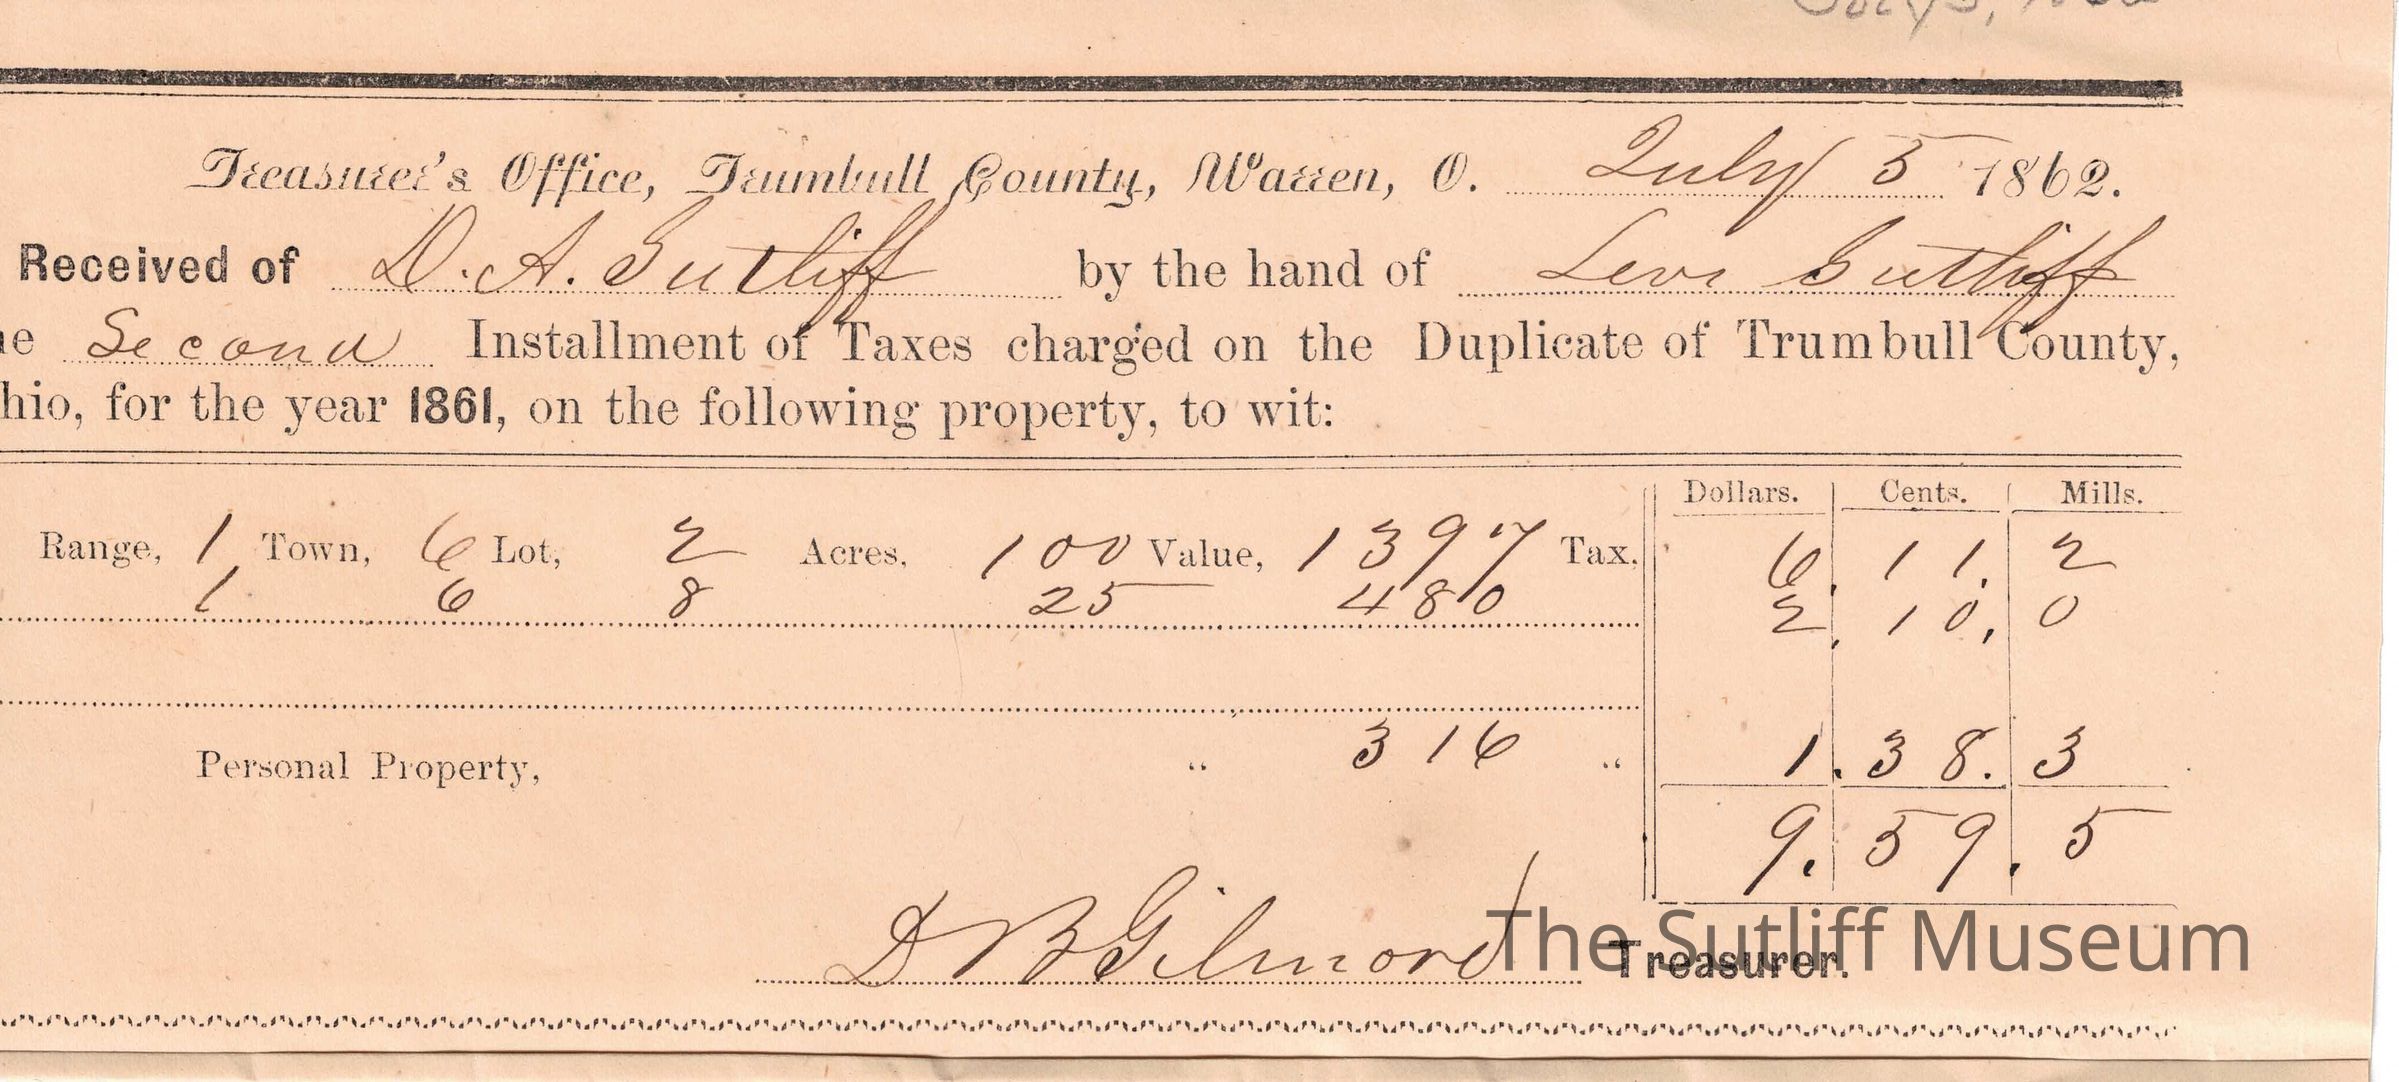 Treasurer's Office, Trumbull County, Warren, O. July 5 1862.
Received of D. A. Sutliff by the hand of Levi Sutliff
he Second Installment of Taxes charged on the Duplicate of Trumbull County,
hio, for the year 1861, on the following property, to wit:
Dollars. Cents. Mills.
Range, 1 Town, 6 Lot, 2 Acres, 100 Value, 1397 Tax, 6. 11. 2
1 6 8 25 480 2. 10. 0
Personal Property, " 316 " 1. 38. 3
9. 59. 5
D B Gilmore Treasurer.
The Sutliff Museum